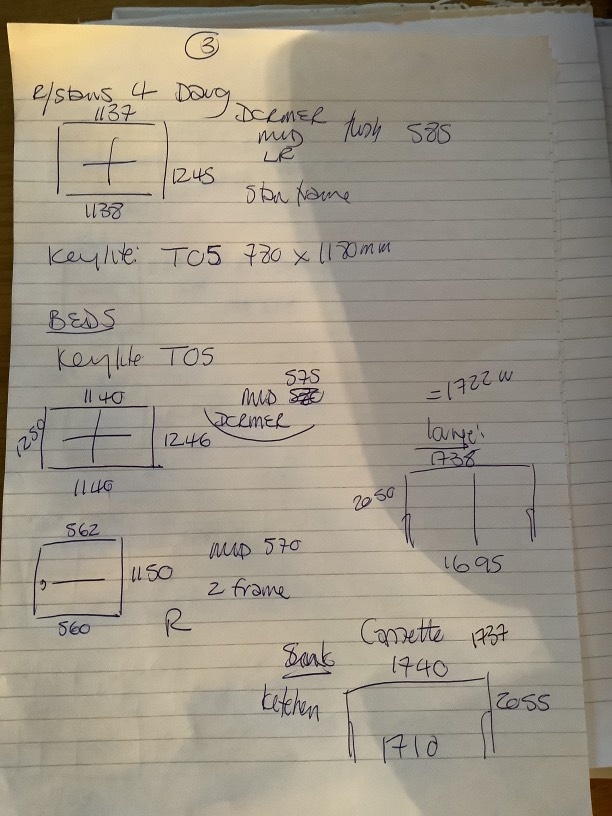 3
R/stans 4 Doug
1137
1245
1138
DCRMER
MID
LR
flush 585
Stan frame
Keylite: TO5 780 x 1180mm
BEDS
Keylite TO5
1140
1250
1246
1140
575
MID
DCRMER
562
1150
560
MID 570
2 frame
R
= 1722 W
Large:
1738
2050
1695
Cassette 1737
1740
Kitchen
2055
1710